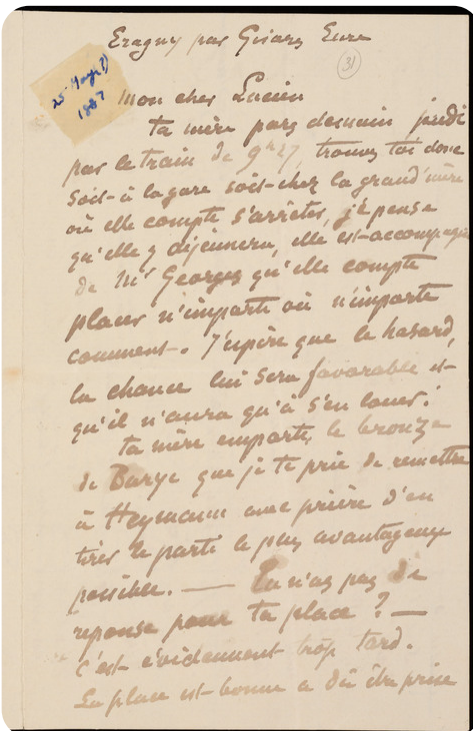 Eragny par Gisors Eure
31
25 May(?)
1887
Mon cher Lucien
ta mère part demain jeudi
par le train de 9h27, trouve toi donc
soit à la gare soit chez la grand'mère
où elle compte s'arrêter, je pense
qu'elle y déjeunera, elle est accompagnée
de Mr Georges qu'elle compte
placer n'importe où n'importe
comment. J'espère que le hasard,
la chance lui sera favorable et
qu'il n'aura qu'à s'en louer!
ta mère emporte, le bronze
de Barye que je te prie de remettre
à Heymann avec prière d'en
tirer le parti le plus avantageux
possible. — Tu n'as pas de
reponse pour ta place? —
c'est évidemment trop tard.
La place est bonne a dû être prise